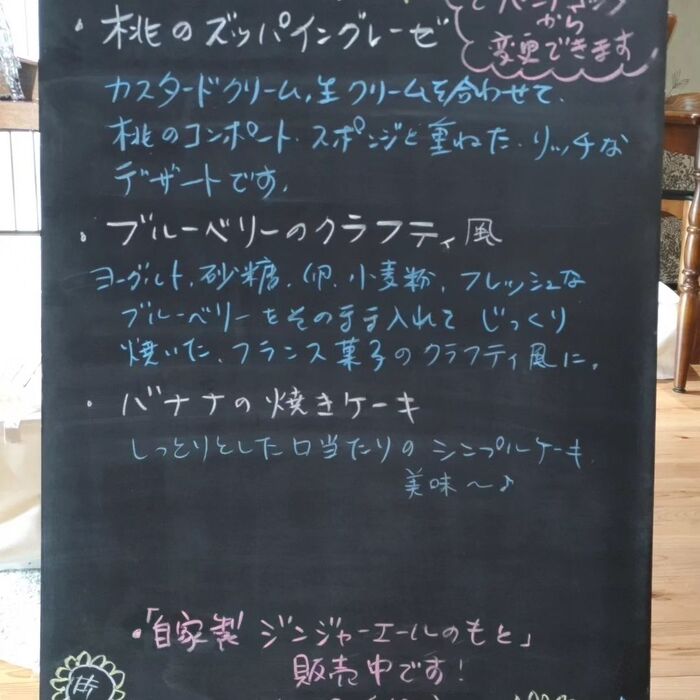 ・桃のズッパイングレーゼ
から
変更できます
カスタードクリーム,生クリームを合わせて、
桃のコンポート、スポンジと重ねた、リッチな
デザートです。
・ブルーベリーのクラフティ風
ヨーグルト、砂糖、卵、小麦粉、フレッシュな
ブルーベリーをそのまま入れて じっくり
焼いた、フランス菓子のクラフティ風に。
・バナナの焼きケーキ
しっとりとした口当たりの シンプルケーキ
美味〜♪
・「自家製 ジンジャーエールのもと」
販売中です!